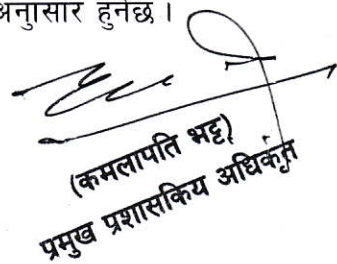 अनुसार हुनेछ ।
(कमलापति भट्ट)
प्रमुख प्रशासकिय अधिकृत